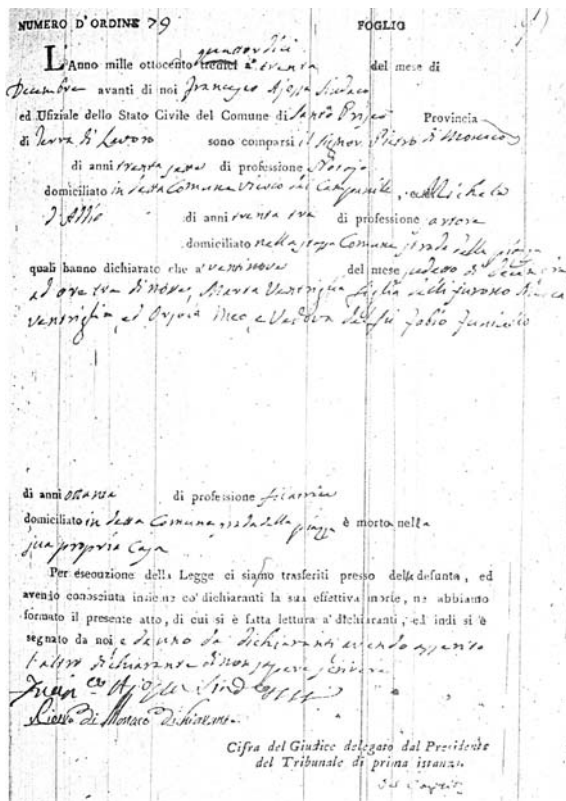 NUMERO D'ORDINE 79 FOGLIO
quattordici
L'Anno mille ottocento tredici a' trenta del mese di
Decembre avanti di noi Francesco Ajossa Sindaco
ed Ufiziale dello Stato Civile del Comune di Santo Prisco Provincia
di Terra di Lavoro sono comparsi il Signor Pietro di Monaco
di anni trenta sette di professione Notajo
domiciliato in detta Comune vicolo del Campanile, e Michele
d'Addio di anni trenta tre di professione sartore
domiciliato nella stessa Comune strada della piazza
quali hanno dichiarato che a' ventinove del mese sudetto di Decembre
ad ore tre di notte, Marta Ventriglia figlia delli furono
Ventriglia, ed Orsola Meo, e Vedova del fu Fabio
di anni ottanta di professione filatrice
domiciliato in detta Comune strada della piazza è morto nella
sua propria Casa
Per esecuzione della Legge ci siamo trasferiti presso della defunta, ed
avendo conosciuta insieme co' dichiaranti la sua effettiva morte, ne abbiamo
formato il presente atto, di cui si è fatta lettura a' dichiaranti, ed indi si è
segnato da noi e da uno de' dichiaranti avendo asserito
l'altro dichiarante di non sapere scrivere
Ajossa Sindaco
Pietro di Monaco Dichiarante
Cifra del Giudice delegato dal Presidente
del Tribunale di prima istanza